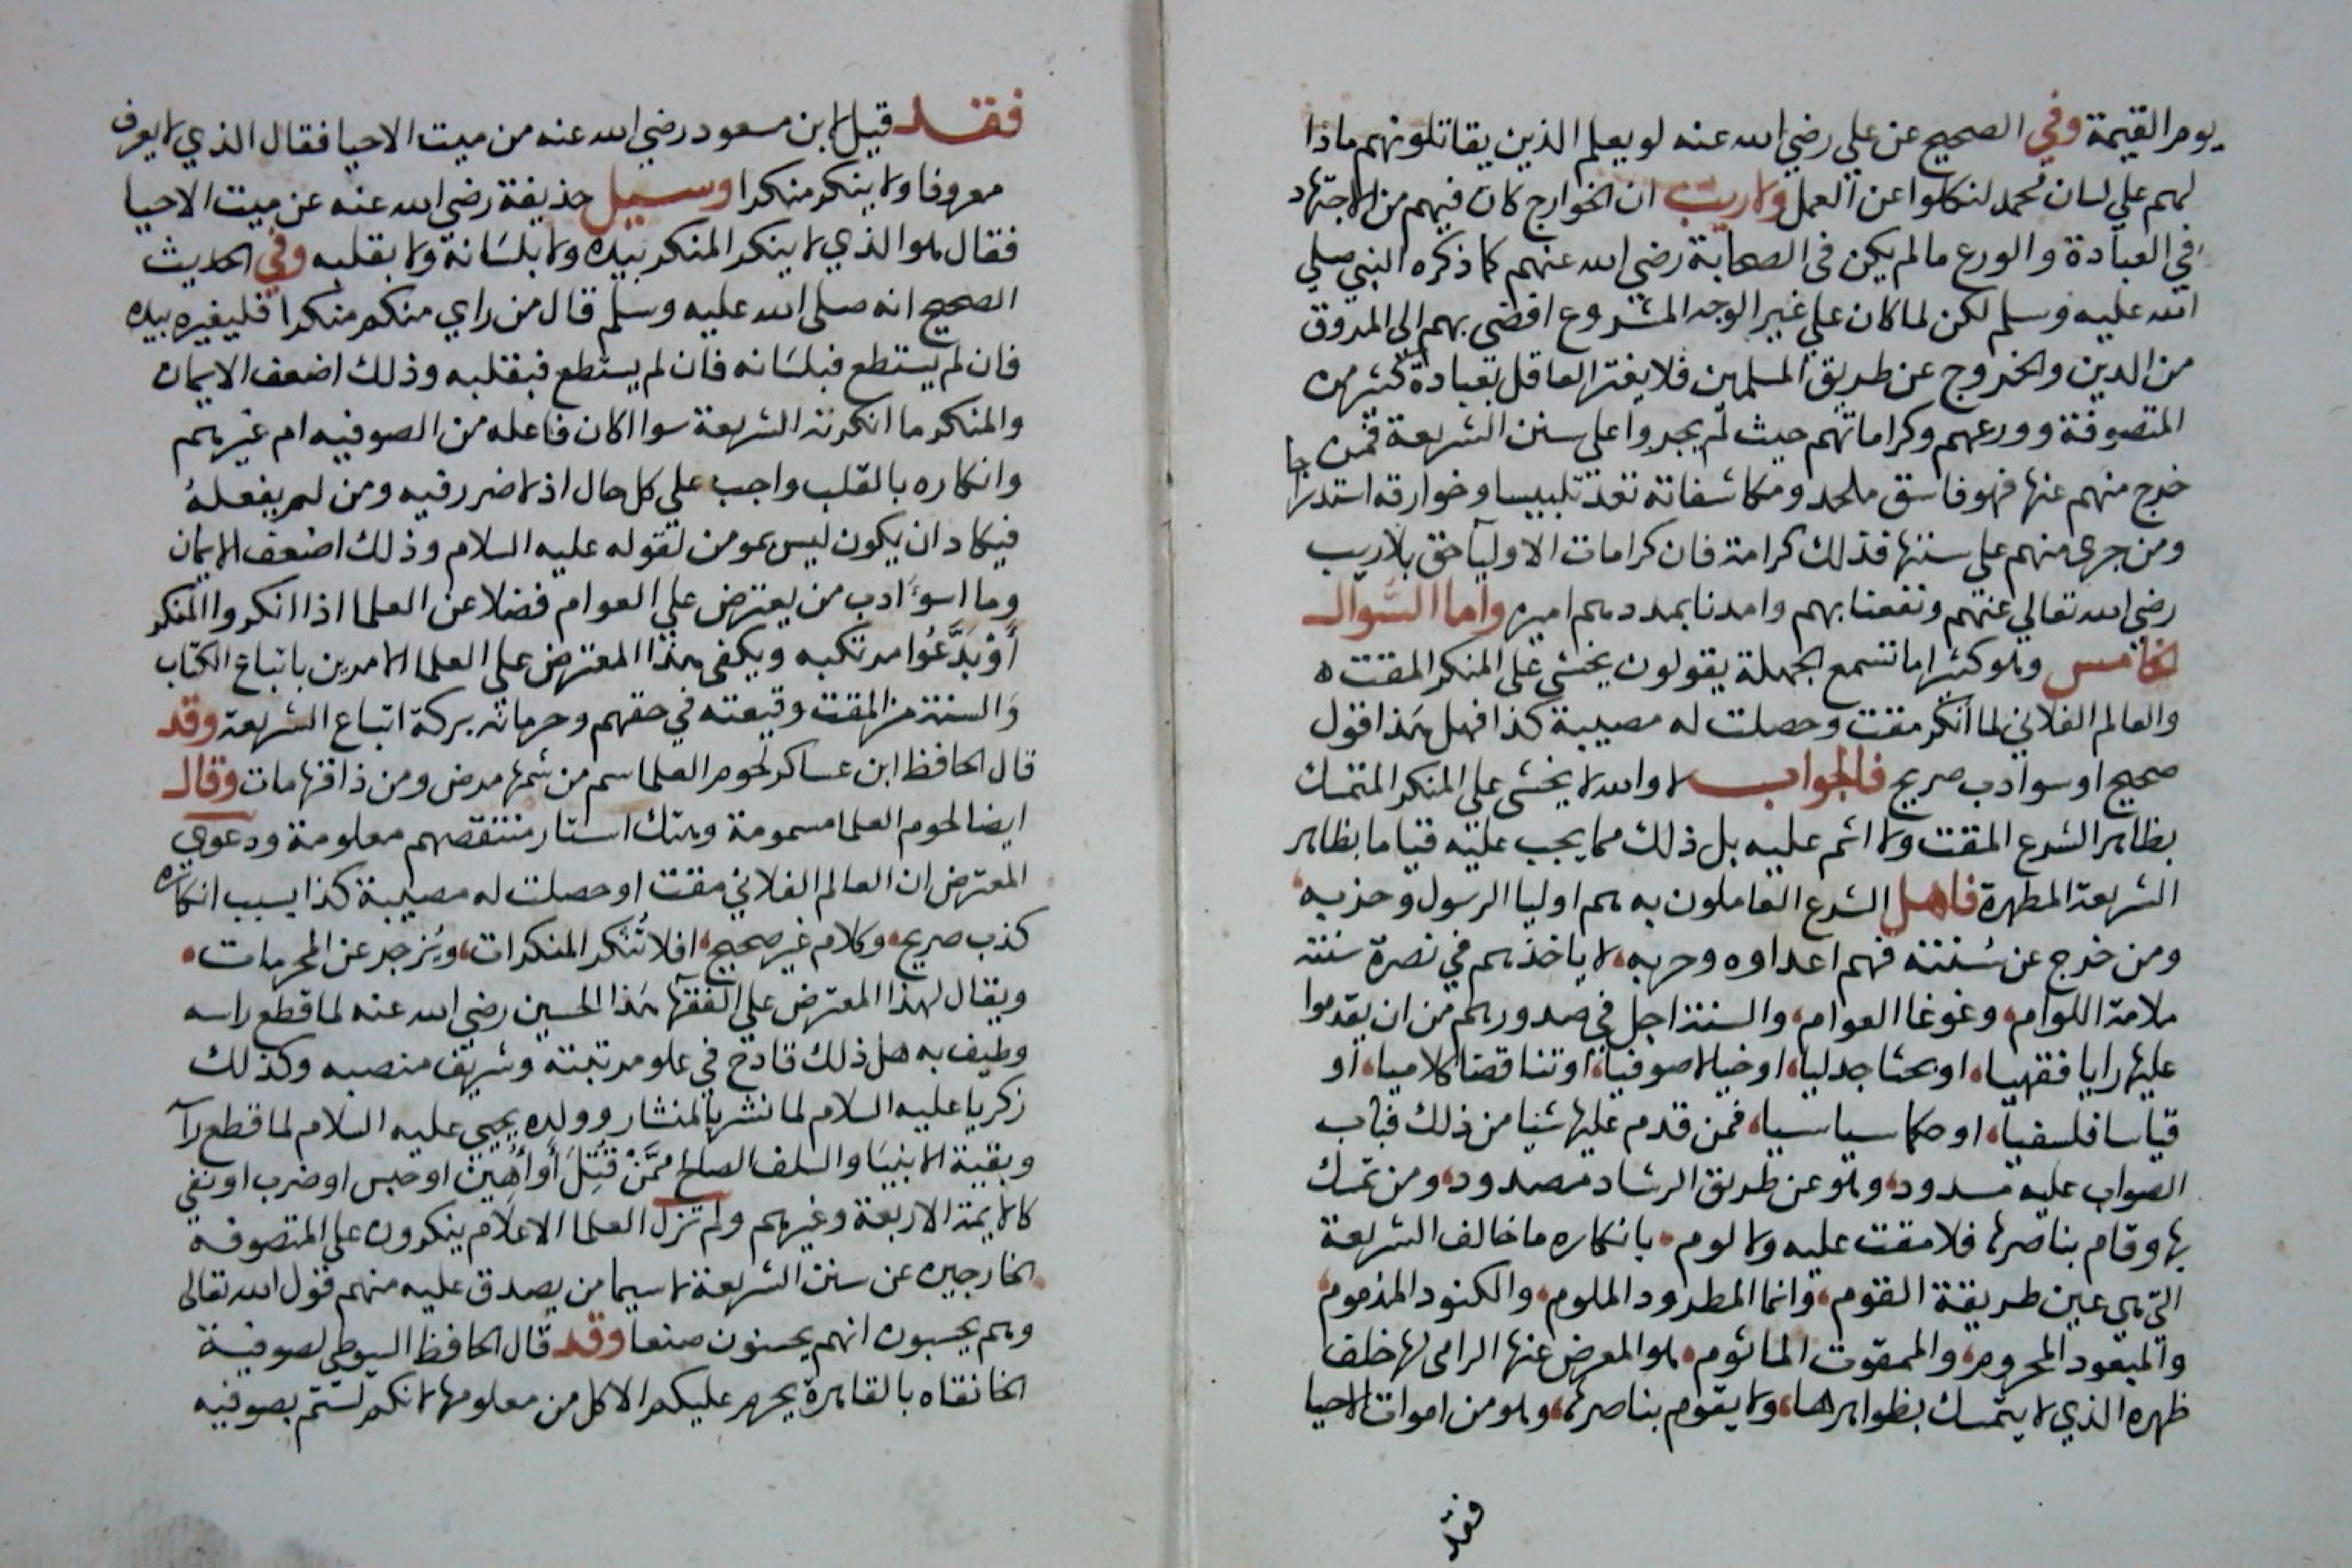 يوم القيمة وفي الصحيح عن علي رضي الله عنه لو يعلم الذين يقاتلونهم ماذا
لهم علي لسان محمد لنكلوا عن العمل ولا ريب ان الخوارج كان فيهم من الاجتهاد
في العبادة والورع مالم يكن في الصحابة رضي الله عنهم كما ذكره النبي صلي
الله عليه وسلم لكن لما كان علي غير الوجه المشروع افضي بهم الي المروق
من الدين والخروج عن طريق المسلمين فلا يغتر العاقل بعبادة كثير من
المتصوفة وورعهم وكراماتهم حيث لم يجروا علي سنن الشريعة فمن
خرج منهم عنها فهو فاسق ملحد ومكاشفاته تعد تلبيسا وخوارقه استدراجا
ومن جري منهم علي سننها فذلك كرامة فان كرامات الاوليآ حق بلا ريب
رضي الله تعالي عنهم ونفعنا بهم وامدنا بمددهم امين واما السوال
الخامس وهو كثيرا ما تسمع الجهلة يقولون يخشي علي المنكر المقت ه
والعالم الفلاني لما انكر مقت وحصلت له مصيبة كذا فهل هذا قول
صحيح او سوادب صريح فالجواب لا والله لا يخشي علي المنكر المتمسك
بظاهر الشرع المقت ولا اثم عليه بل ذلك مما يجب عليه قياما بظاهر
الشريعة المطهرة فاهل الشرع العاملون به هم اوليا الرسول وحزبه
ومن خرج عن سنته فهم اعداوه وحربه لا ياخذهم في نصرة سنته
ملامة اللوام وغوغا العوام والسنة اجل في صدورهم من ان يقدموا
عليها رايا فقهيا او بحثا جدليا او خيالا صوفيا او تناقضا كلاميا او
قياسا فلسفيا او حكما سياسيا فمن قدم عليها شيا من ذلك فباب
الصواب عليه مسدود وهو عن طريق الرشاد مصدود ومن تمسك
بها وقام بناصرها فلا مقت عليه ولا لوم بانكاره ما خالف الشريعة
التي هي عين طريقة القوم وانما المطرود الملوم والكنود المذموم
والمبعود المحروم والممقوت الماثوم هو المعرض عنها الرامي لها خلف
ظهره الذي لا يتمسك بظواهرها ولا يقوم بناصرها وهو من اموات الاحيا
فقد
فقد قيل لابن مسعود رضي الله عنه من ميت الاحيا فقال الذي لا يعرف
معروفا ولا ينكر منكرا وسيل حذيفة رضي الله عنه عن ميت الاحيا
فقال هو الذي لا ينكر المنكر بيده ولا بلسانه ولا بقلبه وفي الحديث
الصحيح انه صلي الله عليه وسلم قال من راي منكم منكرا فليغيره بيده
فان لم يستطع فبلسانه فان لم يستطع فبقلبه وذلك اضعف الايمان
والمنكر ما انكرته الشريعة سوا اكان فاعله من الصوفيه ام غيرهم
وانكاره بالقلب واجب علي كل حال اذ لا ضرر فيه ومن لم يفعله
فيكاد ان يكون ليس بمومن لقوله عليه السلام وذلك اضعف الايمان
وما اسوَأ ادب من يعترض علي العوام فضلا عن العلما اذا انكروا المنكر
أَوْ بَدَّعُوا مرتكبه ويكفي هذا المعترض علي العلما الامرين باتباع الكتاب
والسنة من المقت وقيعته في حقهم وحرمانه بركة اتباع الشريعة وقد
قال الحافظ ابن عساكر لحوم العلما سم من شمها مرض ومن ذاقها مات وقال
ايضا لحوم العلما مسمومة وهتك استار منتقصهم معلومة ودعوي
المعترض ان العالم الفلاني مقت او حصلت له مصيبة كذا بسبب انكاره
كذب صريح وكلام غير صحيح افلا تُنكر المنكرات ويُزجر عن المحرمات
ويقال لهذا المعترض علي الفقهآ هذا الحسين رضي الله عنه لما قطع راسه
وطيف به هل ذلك قادح في علو مرتبته وشريف منصبه وكذلك
زكريا عليه السلام لما نشر بالمنشار وولده يحيي عليه السلام لما قطع رآ
وبقية الانبيا والسلف الصالح مِمَّنْ قُتِلَ أَو أُهِين او حبس او ضرب او نفي
كالايمة الاربعة وغيرهم ولم تزل العلما الاعلام ينكرون علي المتصوفة
الخارجين عن سنن الشريعة لا سيما من يصدق عليه منهم قول الله تعالي
وهم يحسبون انهم يحسنون صنعا وقد قال الحافظ السيوطي لصوفية
الخانقاه بالقاهرة يحرم عليكم الاكل من معلومها لانكم لستم بصوفيه